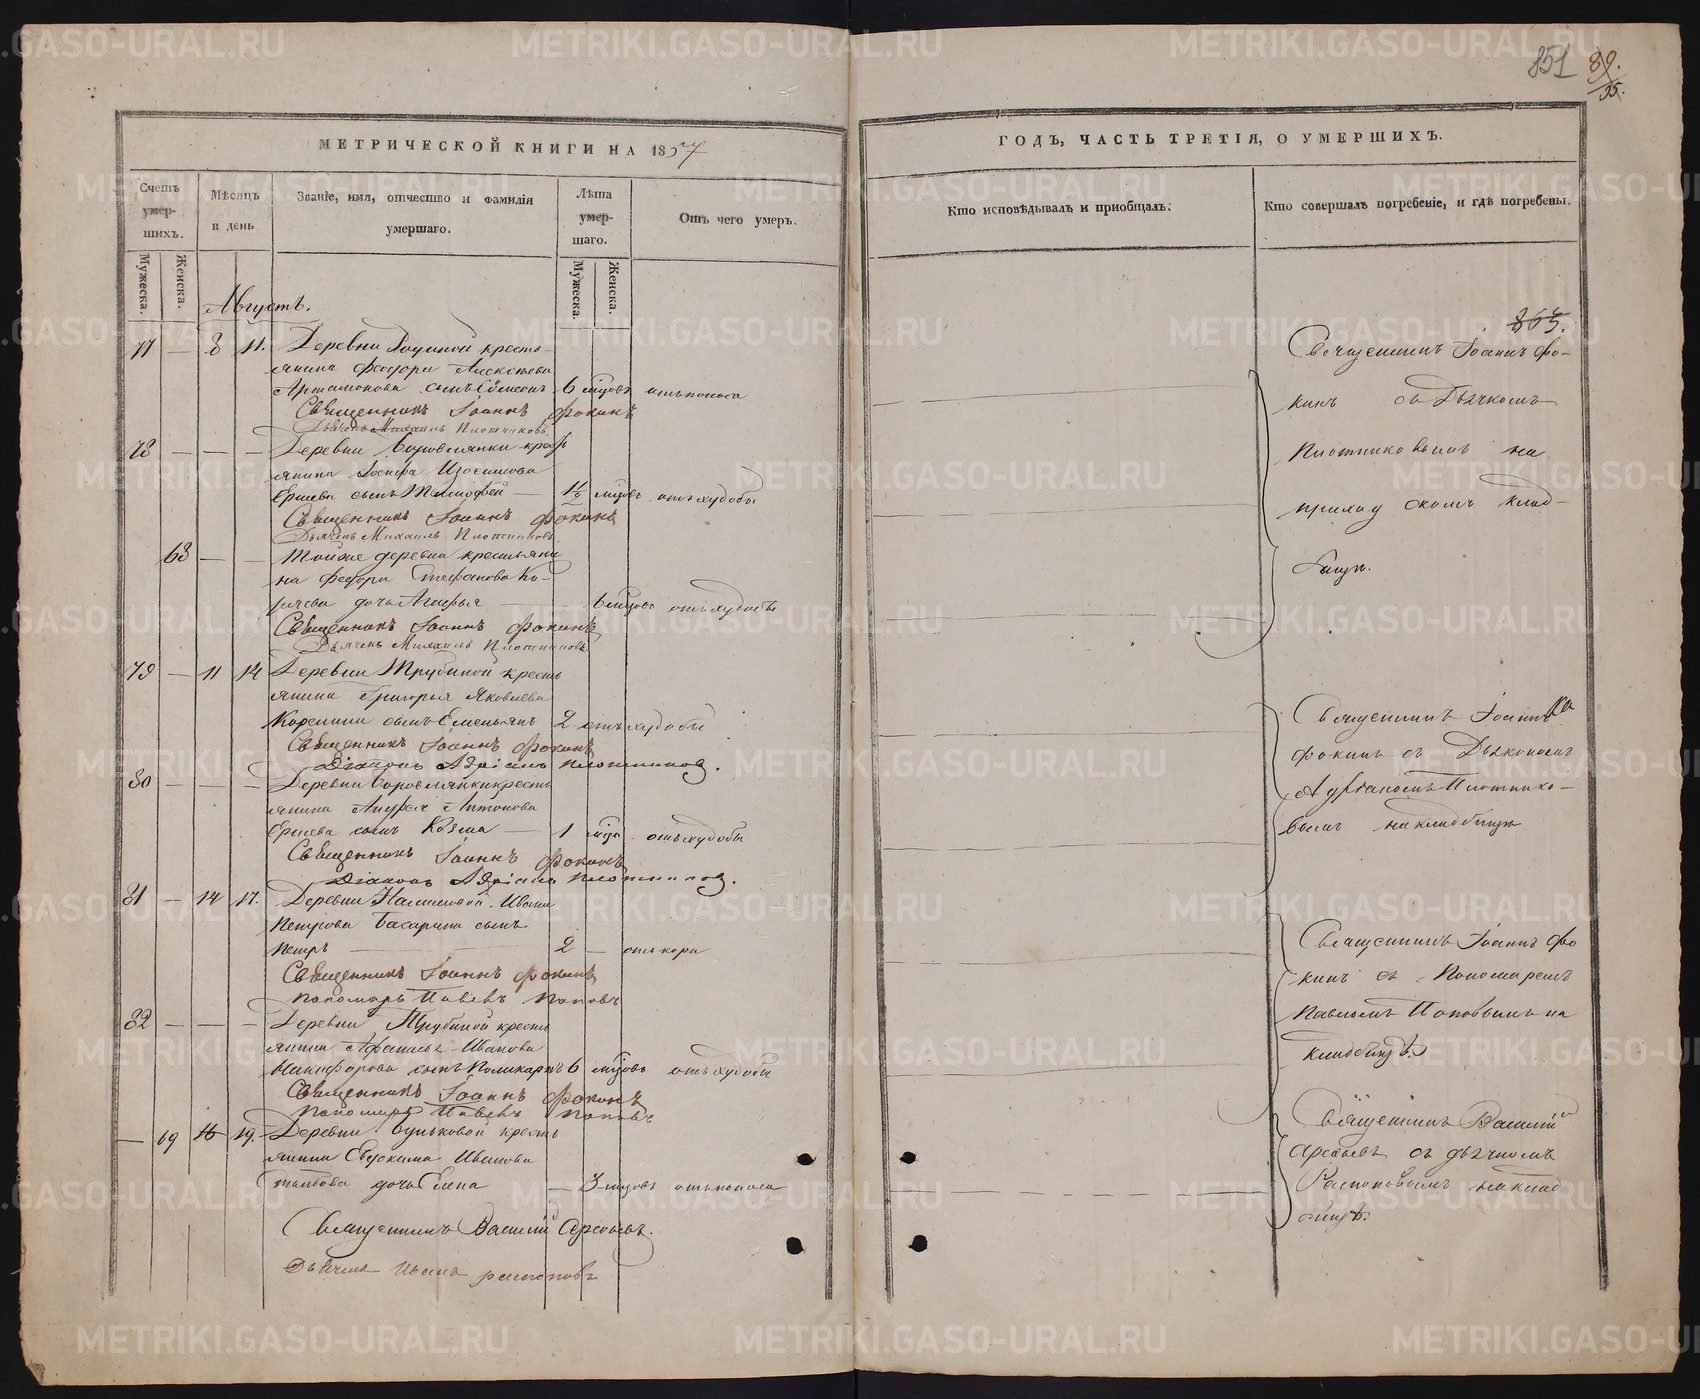 851 89.
95.
МЕТРИЧЕСКОЙ КНИГИ НА 1857
Счетъ умершихъ.
Мужеска.
Женска.
Мѣсяцъ и день
Званіе, имя, отчество и фамилія умершаго.
Лѣта умершаго.
Мужеска.
Женска.
Отъ чего умеръ.
Августъ.
77 — 8 11. Деревни крестьянина Феодора Алексѣева
Артамонова сынъ Сѵмеонъ 6 мѣсцовъ отъ поноса
Священникъ Іоаннъ Фокинъ
Дьячекъ Михаилъ Плотниковъ
78 — — — Деревни Боровлянки крестьянина Іосифа Изосимова
Ершева сынъ Тимофей — 1½ мѣсцовъ отъ худобы
Священникъ Іоаннъ Фокинъ
Дьячекъ Михаилъ Плотниковъ
68 — — Той же деревни крестьяни
на Федора Стефанова
дочь Агафья — 6 мѣсцовъ отъ худобы
Священникъ Іоаннъ Фокинъ
Дьячекъ Михаилъ Плотниковъ
79 — 11 14 Деревни Трубиной крестьянина Григорья Яковлева
Корелина сынъ Емельянъ 2 отъ худобы
Священникъ Іоаннъ Фокинъ
Діаконъ Адріанъ Плотниковъ.
80 — — — Деревни Боровлянки крестьянина Андрея Антонова
Ершева сынъ Козма — 1 мѣсца отъ худобы
Священникъ Іоаннъ Фокинъ
Діаконъ Адріанъ Плотниковъ.
81 — 14 17. Деревни Ивана
Петрова Басарина сынъ
Петръ — 2 — отъ кори
Священникъ Іоаннъ Фокинъ
Пономарь Павелъ Поповъ
82 — — — Деревни Трубиной крестьянина Афанасья Иванова
Никифорова сынъ Поликарпъ 6 мѣсцовъ отъ худобы
Священникъ Іоаннъ Фокинъ
Пономарь Павелъ Поповъ
— 69 16 19. Деревни Буньковой крестьянина Евдокима Иванова
дочь Елена — 3 мѣсцовъ отъ поноса
Священникъ Василій Арефьевъ.
Дьячекъ Иванъ Распоповъ
ГОДЪ, ЧАСТЬ ТРЕТІЯ, О УМЕРШИХЪ.
Кто исповѣдывалъ и пріобщалъ.
Кто совершалъ погребеніе, и гдѣ погребены.
865.
Священникъ Іоаннъ Фо-
кинъ съ Дьячкомъ
Плотниковымъ на
приходскомъ клад-
бищѣ.
Священникъ Іоаннъ
Фокинъ съ Діакономъ
Адріаномъ Плотнико-
вымъ на кладбищѣ
Священникъ Іоаннъ Фо
кинъ съ Пономаремъ
Павломъ Поповымъ на
кладбищѣ.
Священникъ Василій
Арефьевъ съ дьячкомъ
Распоповымъ на клад
бищѣ.